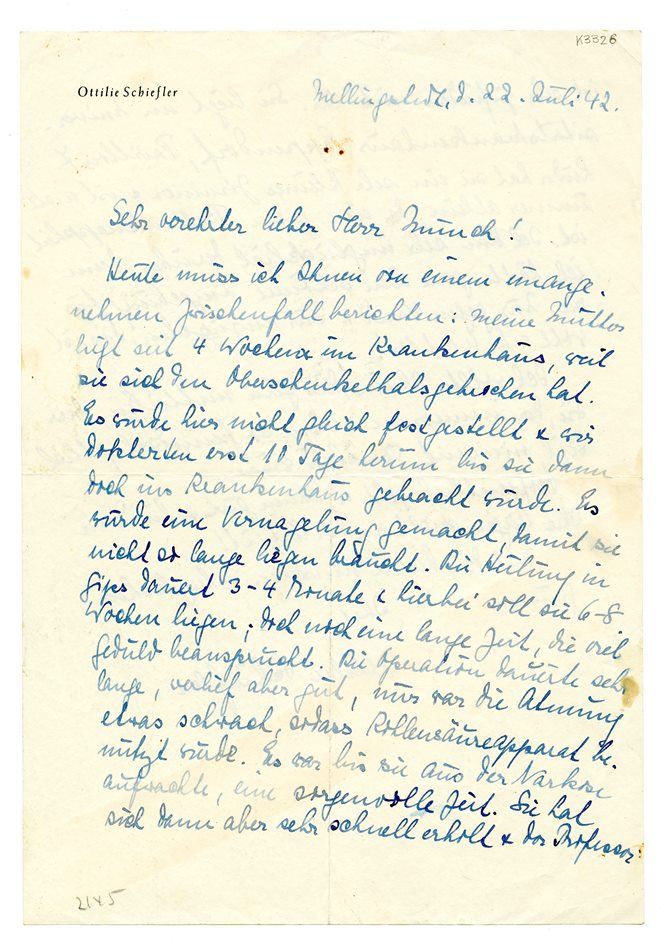 K3326
Ottilie Schiefler
Mellingstedt, d. 22. Juli 42.
Sehr verehrter lieber Herr Munch!
Heute muss ich Ihnen von einem unange-
nehmen Zwischenfall berichten: meine Mutter
liegt seit 4 Wochen im Krankenhaus, weil
sie sich den Oberschenkelhals gebrochen hat.
Es wurde hier nicht gleich festgestellt & wir
dokterten erst 10 Tage herum bis sie dann
doch ins Krankenhaus gebracht wurde. Es
wurde eine Vernagelung gemacht, damit sie
nicht so lange liegen braucht. Die Heilung in
Gips dauert 3-4 Monate & hierbei soll sie 6-8
Wochen liegen; doch noch eine lange Zeit, die viel
Geduld beansprucht. Die Operation dauerte sehr
lange, verlief aber gut, nur war die Atmung
etwas schwach, sodass Kohlensäureapparat be-
nutzt wurde. Es war bis sie aus der Narkose
aufwachte, eine sorgenvolle Zeit. Sie hat
sich dann aber sehr schnell erholt & der Professor
2145